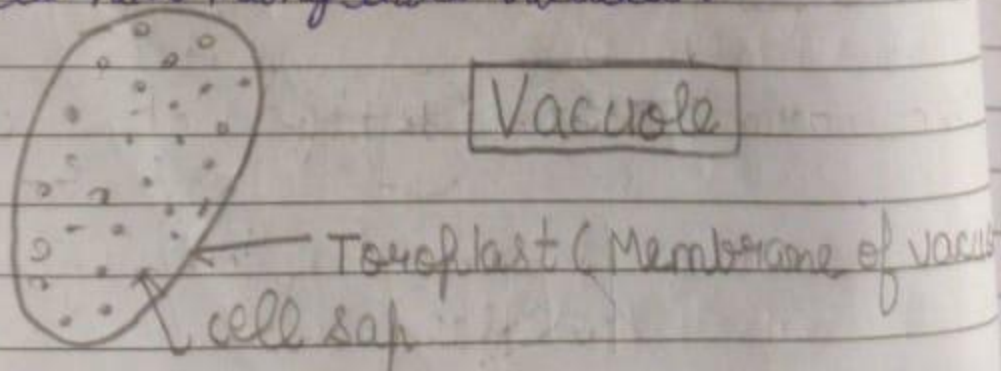 Vacuole
Tonoplast (Membrane of vacu
cell sap